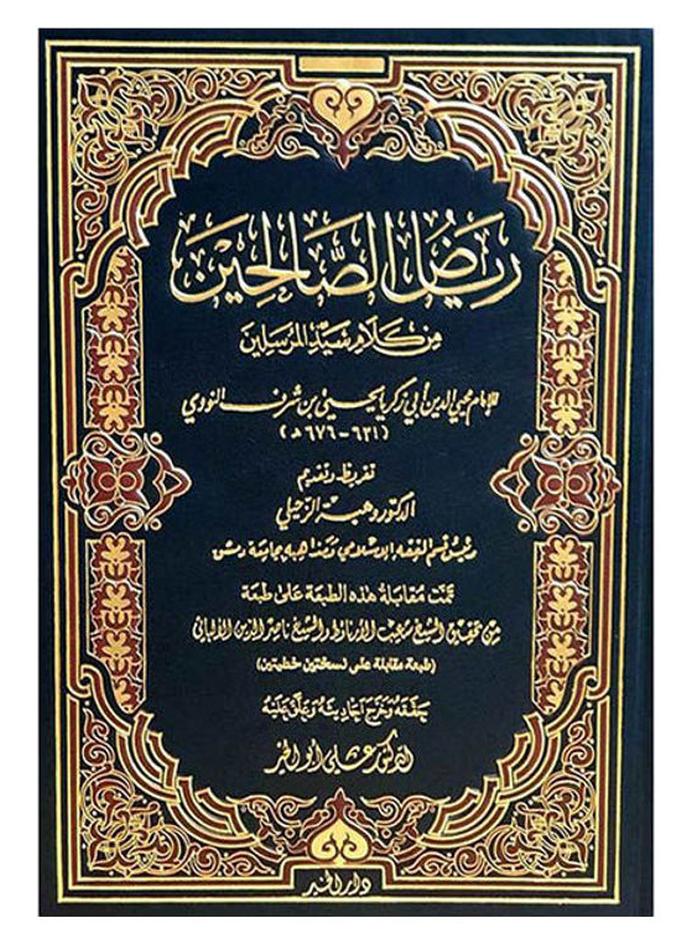 رِيَاضُ الصَّالِحِيْن
مِنْ كَلَامِ سَيِّدِ المُرْسَلِينَ
للإمام محيي الدين أبي زكريا يحيى بن شرف النووي
(٦٣١-٦٧٦ھ)
تقريظ وتقديم
الدكتور وهبة الزحيلي
رئيس قسم الفقه الإسلامي ومذاهبه بجامعة دمشق
تمت مقابلة هذه الطبعة على طبعة
من تحقيق الشيخ شعيب الأرناؤط والشيخ ناصر الدين الألباني
(طبعة مقابلة على نسختين خطيتين)
حققه وخرج أحاديثه وعلق عليه
الدكتور علي أبو الخير
دار الخير